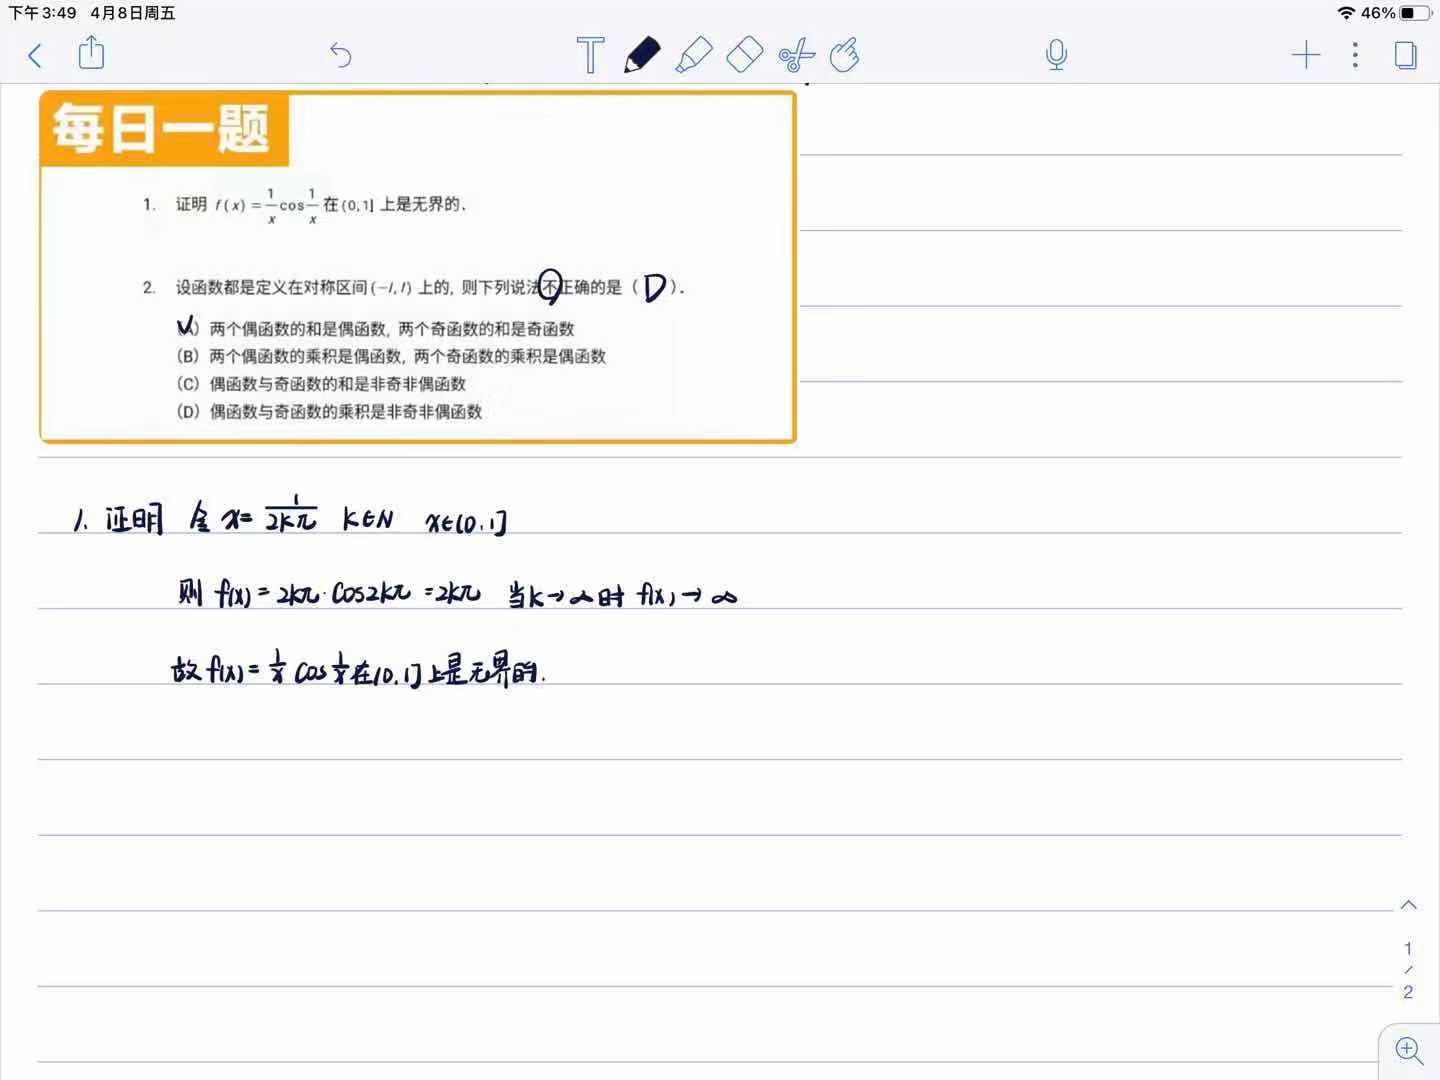 下午3:49 4月8日周五 46%
每日一题
1. 证明 f(x)=1/x cos 1/x 在(0,1]上是无界的.
2. 设函数都是定义在对称区间(-l,l)上的, 则下列说法不正确的是( D ).
(A) 两个偶函数的和是偶函数, 两个奇函数的和是奇函数
(B) 两个偶函数的乘积是偶函数, 两个奇函数的乘积是偶函数
(C) 偶函数与奇函数的和是非奇非偶函数
(D) 偶函数与奇函数的乘积是非奇非偶函数
1. 证明 令 x= 1/2kπ k∈N x∈(0,1]
则 f(x)=2kπ·cos2kπ=2kπ 当k→∞时 f(x)→∞
故 f(x)=1/x cos 1/x 在(0,1]上是无界的.
1
/
2